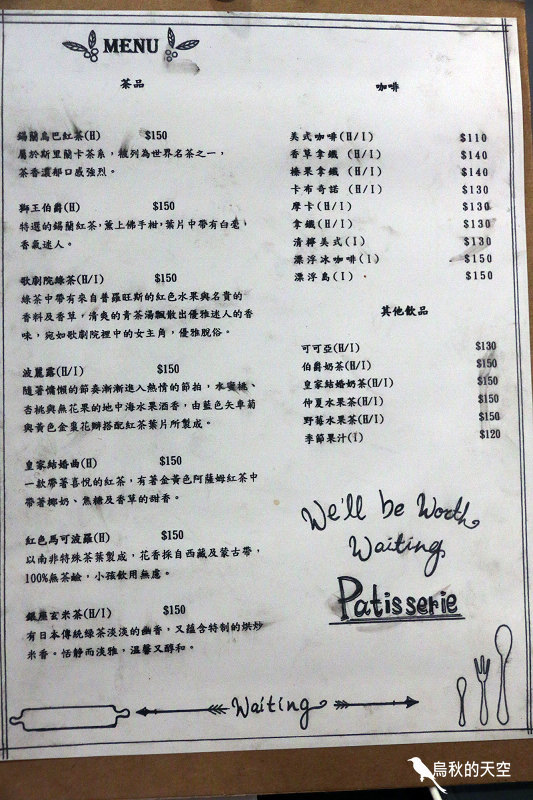 MENU
茶品
錫蘭烏巴紅茶(H) $150
屬於斯里蘭卡茶系，被列為世界名茶之一，
茶香濃郁口感強烈。
獅王伯爵(H) $150
特選的錫蘭紅茶，薰上佛手柑，葉片中帶有白毫，
香氣迷人。
歌劇院綠茶(H/I) $150
綠茶中帶有來自普羅旺斯的紅色水果與名貴的
香料及香草，清爽的青茶湯飄散出優雅迷人的香
味，宛如歌劇院裡中的女主角，優雅脫俗。
波麗露(H/I) $150
隨著慵懶的節奏漸漸進入熱情的節拍，水蜜桃、
杏桃與無花果的地中海水果酒香，由藍色矢車菊
與黃色金棗花瓣搭配紅茶葉片所製成。
皇家結婚曲(H) $150
一款帶著喜悅的紅茶，有著金黃色阿薩姆紅茶中
帶著椰奶、焦糖及香草的甜香。
紅色馬可波羅(H) $150
以南非特殊茶葉製成，花香採自西藏及蒙古帶，
100%無茶鹼，小孩飲用無慮。
銀座玄米茶(H/I) $150
有日本傳統綠茶淡淡的幽香，又蘊含特制的烘炒
米香。恬靜而淡雅，溫馨又醇和。
咖啡
美式咖啡(H/I) $110
香草拿鐵 (H/I) $140
榛果拿鐵 (H/I) $140
卡布奇諾 (H/I) $130
摩卡(H/I) $130
拿鐵(H/I) $130
清檸美式(I) $130
漂浮冰咖啡(I) $150
漂浮島(I) $150
其他飲品
可可亞(H/I) $130
伯爵奶茶(H/I) $150
皇家結婚奶茶(H/I) $150
仲夏水果茶(H/I) $150
野莓水果茶(H/I) $150
季節果汁(I) $120
We'll be Worth
Waiting
Patisserie
Waiting
烏秋的天空